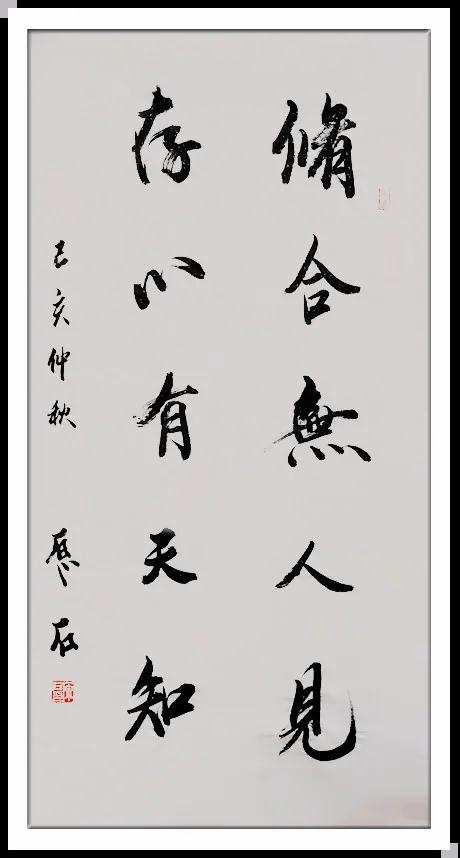 脩合無人見
存心有天知
己亥仲秋